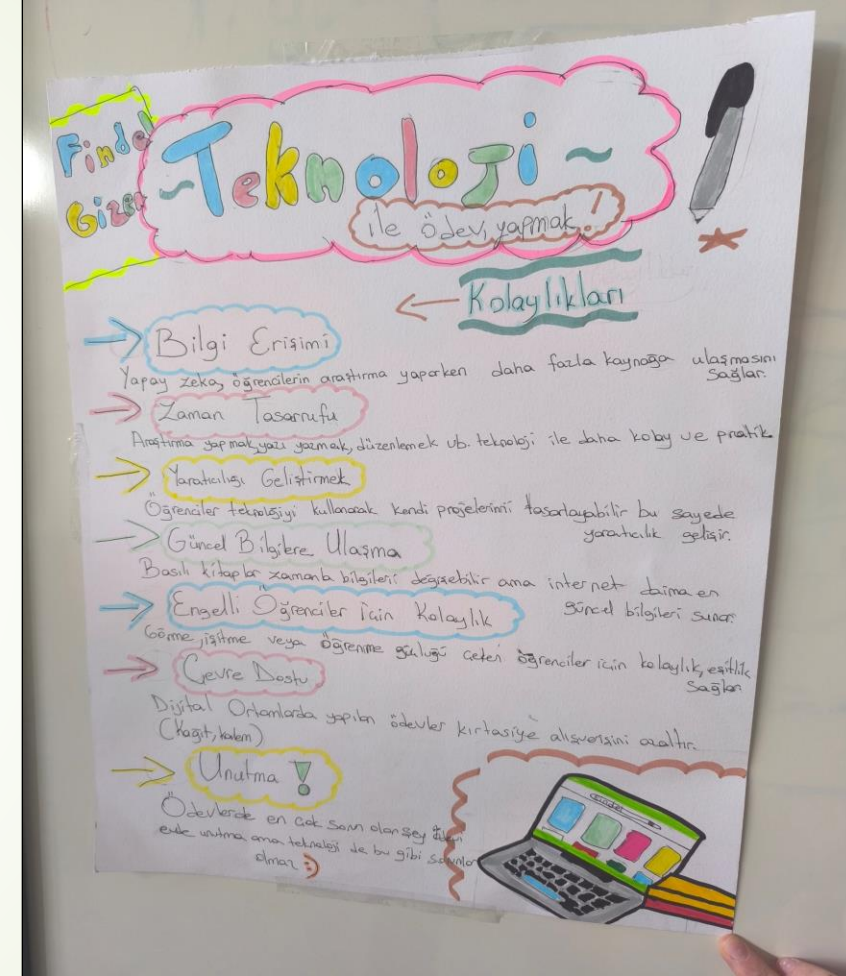 Findel
Gizem
~Teknoloji~
ile ödevi yapmak!
Kolaylıkları
Bilgi Erişimi
Yapay zeka, öğrencilerin araştırma yaparken daha fazla kaynağa ulaşmasını
sağlar.
Zaman Tasarrufu
Araştırma yapmak, yazı yazmak, düzenlemek vb. teknoloji ile daha kolay ve pratik
Yaratıcılığı Geliştirmek
Öğrenciler teknolojiyi kullanarak kendi projelerini tasarlayabilir bu sayede
yaratıcılık gelişir.
Güncel Bilgilere Ulaşma
Basılı kitaplar zamanla bilgileri değişebilir ama internet daima en
güncel bilgileri sunar.
Engelli Öğrenciler için Kolaylık
Görme, işitme veya öğrenme güçlüğü çeken öğrenciler için kolaylık, eşitlik
sağlar.
Çevre Dostu
Dijital Ortamlarda yapılan ödevler kırtasiye alışverişini azaltır.
(Kağıt, kalem)
Unutma !
Ödevlerde en çok sorun olan şey
evde unutma ama teknoloji de bu gibi sorunlar
olmaz :)